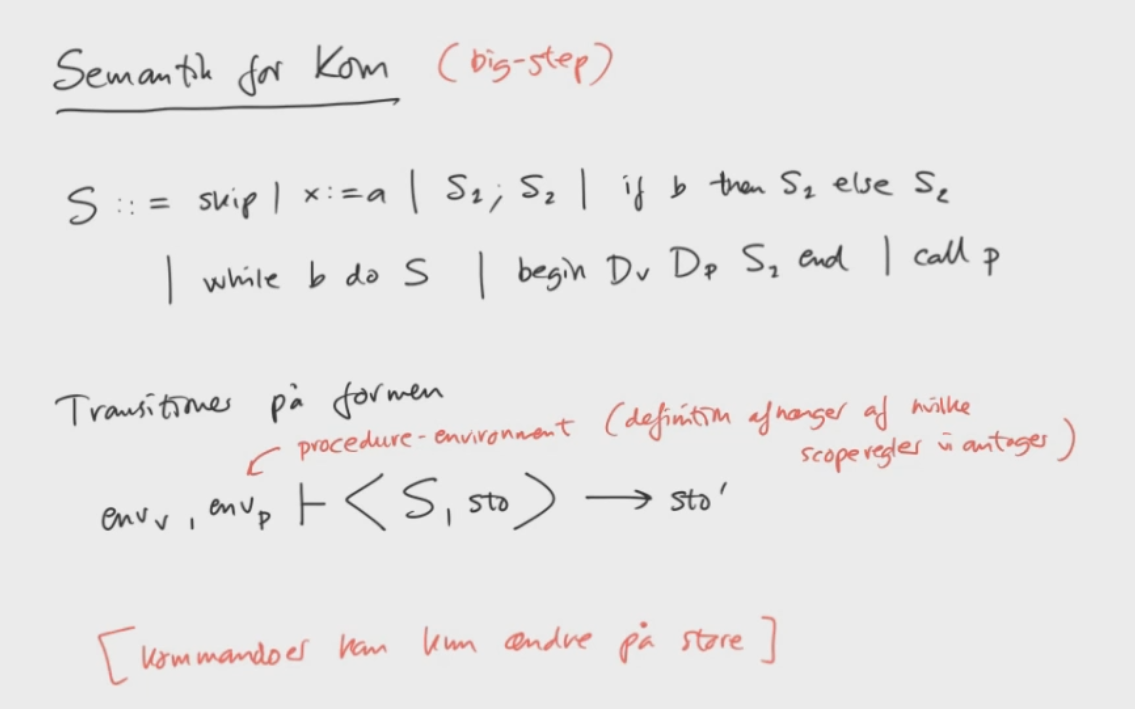 Semantik for Kom (big-step)
S ::= skip | x:=a | S₁; S₂ | if b then S₁ else S₂
| while b do S | begin Dv Dp S₁ end | call p
Transitioner på formen
procedure-environment (definition afhænger af hvilke
scoperegler vi antager)
envᵥ, envₚ ⊢ <S, sto> → sto'
[kommandoer kan kun ændre på store]